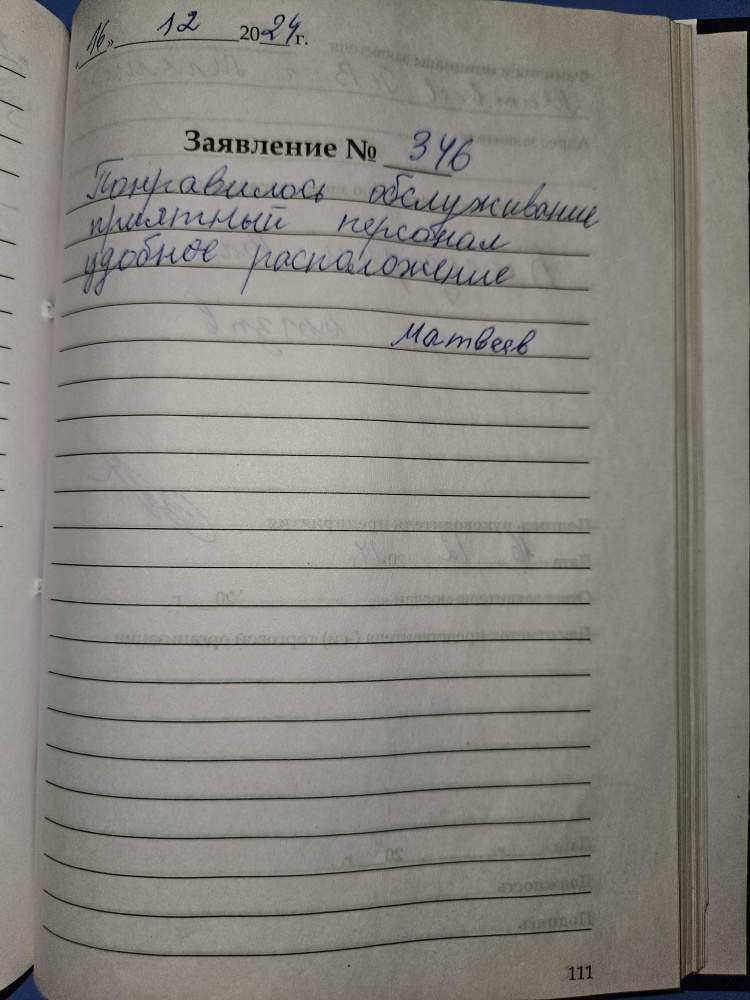 «16» 12 2024 г.
Заявление № 346
Понравилось обслуживание
приятный персонал
удобное расположение
Матвеев
111